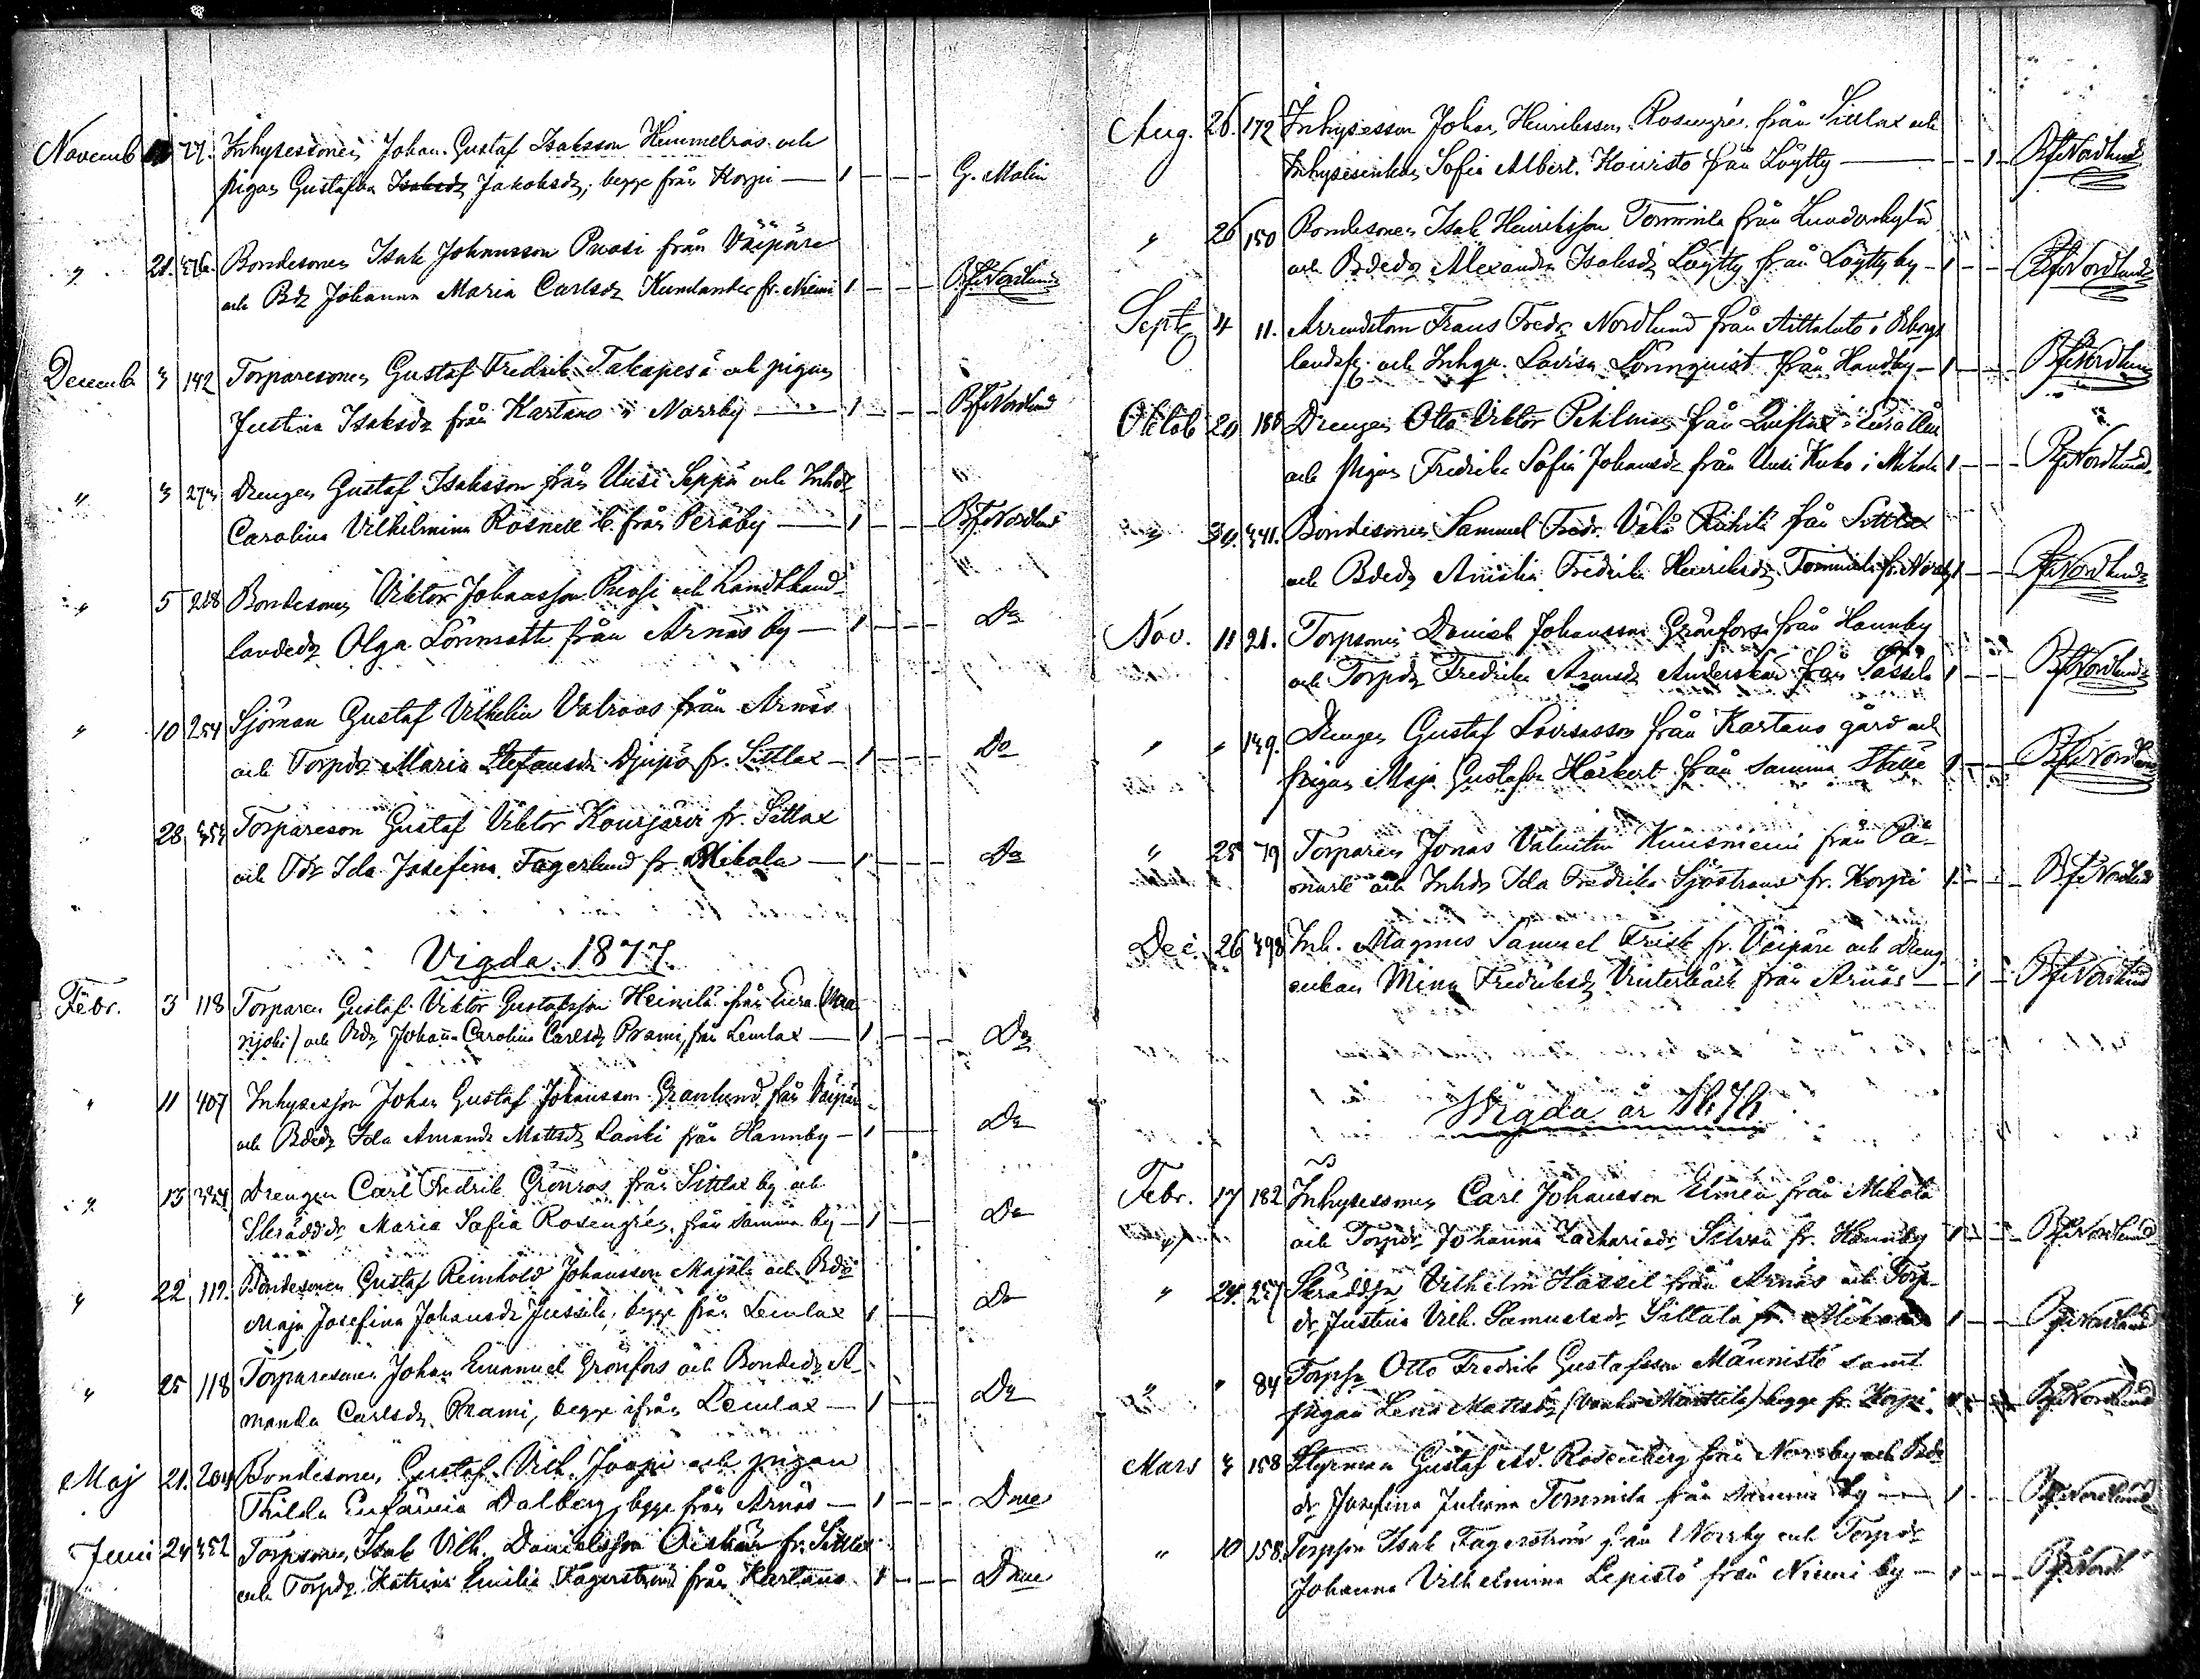 Novemb 27. Inhysessonen Johan Gustaf Isaksson Himmelros och
pigan Gustafva Isaksdr Jakobsdr, begge från Korpi — 1 — — — G. Malin
" 21. 376. Bondesonen Isak Johansson Prosi från Väipäre
och Bdr Johanna Maria Carlsdr Kumlander fr. Niemi 1 — — — Nordlund
Decemb 3 142 Torparesonen Gustaf Fredrik Takapesä och pigan
Justina Isaksdr från Kartano i Norrby — 1 — — — Nordlund
" 3 273 Drengen Gustaf Isaksson från Uusi Seppä och Inhdr
Carolina Vilhelmina Rosnell fr. från Peräby — 1 — — — Nordlund
" 5 218 Bondesonen Viktor Johansson Prosi och Landthand-
landedr Olga Lönnroth från Arnäs by — 1 — — — Do
" 10 254 Sjöman Gustaf Vilhelm Valroos från Arnäs
och Torpdr Maria Stefansdr Djupö fr. Sittlax — 1 — — — Do
28 353 Torpareson Gustaf Viktor Kourjärvi fr. Sittlax
och Tdr Ida Josefina Fagerlund fr. Mikola — 1 — — — Do
Vigda 1877.
Febr. 3 118 Torparen Gustaf Viktor Gustafsson Heinilä från Eura (
njoki) och Bdr Johanna Carolina Carlsdr Prami, från Lemlax — 1 — — — Do
" 11 407 Inhysesson Johan Gustaf Johansson Granlund från Väipär
och Bdedr Ida Amanda Mattsdr Lanki från Hannby — 1 — — Do
" 13 324 Drengen Carl Fredrik Grönroos från Sittlax by och
Skrädddr Maria Sofia Rosengrén från samma by — 1 — — Do
" 22 119. Bondesonen Gustaf Reinhold Johansson Majala och Bdr
Maja Josefina Johansdr Jussila, begge från Lemlax 1 — — Do
" 25 118 Torparesonen Johan Emanuel Grönfors och Bondedr A-
manda Carlsdr Prami, begge ifrån Lemlax — 1 — — Do
Maj 21. 204 Bondesonen Gustaf Vilh. Jaapi och pigan
Thilda Eufämia Dalberg, begge från Arnäs — 1 — — — Dme
Juni 24 352 Torpsonen Isak Vilh. Danielsson fr. Sittlax
och Torpdr Katrina Emilia Fagerström från Kartano 1 — — — Dme
Aug. 26. 172 Inhysesson Johan Henriksson Rosengrén från Sittlax och
Inhysesenkan Sofia Albert. Koivisto från Löytty — — — 1 — Nordlund
" 26 150 Bondesonen Isak Henriksson Tommila från
och Bdedr Alexandra Isaksdr Löytty från Löytty by — 1 — — — Nordlund
Sept 4 11. Arrendatorn Frans Fredr. Nordlund från Aittaluto i Bborgs
landsfg. och Inhqv. Lovisa Lönnqvist från Handby — 1 — — — Nordlund
Oktob 20 188 Drengen Otto Viktor Pehlman från i Eura Åm
och pigan Fredrika Sofia Johansdr från Uusi Kuko i Mikola 1 — — — Nordlund
" 341. Bondesonen Samuel Fredr. Vähä Riihilä från Sittlax
och Bdedr Amalia Fredrika Henriksdr Tommila fr. Norrby 1 — — — Nordlund
Nov. 11 21. Torpsonen Daniel Johansson Grönfors från Hannby
och Torpdr Fredrika från Sassila 1 — — — Nordlund
" " 149. Drengen Gustaf Lovisasson från Kartano gård och
pigan Maja Gustafva Härkert från samma ställe 1 — — — Nordlund
" 25 79 Torparen Jonas Valentin Kuusniemi från På-
mark och Inhdr Ida Fredrika Sjöstrand fr. Korpi 1 — — — Nordlund
Dec. 26 398 Inh. Magnus Samuel Frisk fr. Väipäre och Dreng-
enkan Mina Fredriksdr Vinterbäck från Arnäs — — 1 — Nordlund
Wigda år 1878
Febr. 17 182 Inhysessonen Carl Johansson Elmén från Mikola
och Torpdr Johanna Zachariadr Silvan fr. Hannby 1 — — — Nordlund
" 24. 257 Skräddrn Vilhelm Hassel från Arnäs och Torp-
dr Justina Vilh. Samuelsdr Sillala fr. Mikola 1 — — — Nordlund
" " 84 Torpsn Otto Fredrik Gustafsson Männistö samt
pigan Lena Mattsdr (Vanha Marttila) begge fr. Korpi. Nordlund
Mars 3 158 Styrman Gustaf Ad. Rosenberg från Norrby och Bde
dr Josefina Juliana Tommila från samma by — 1 — — — Nordlund
" 10 158 Torpson Isak Fagerström från Norrby och Torpdr
Johanna Vilhelmina Lepistö från Niemi by — 1 — — — Nordl